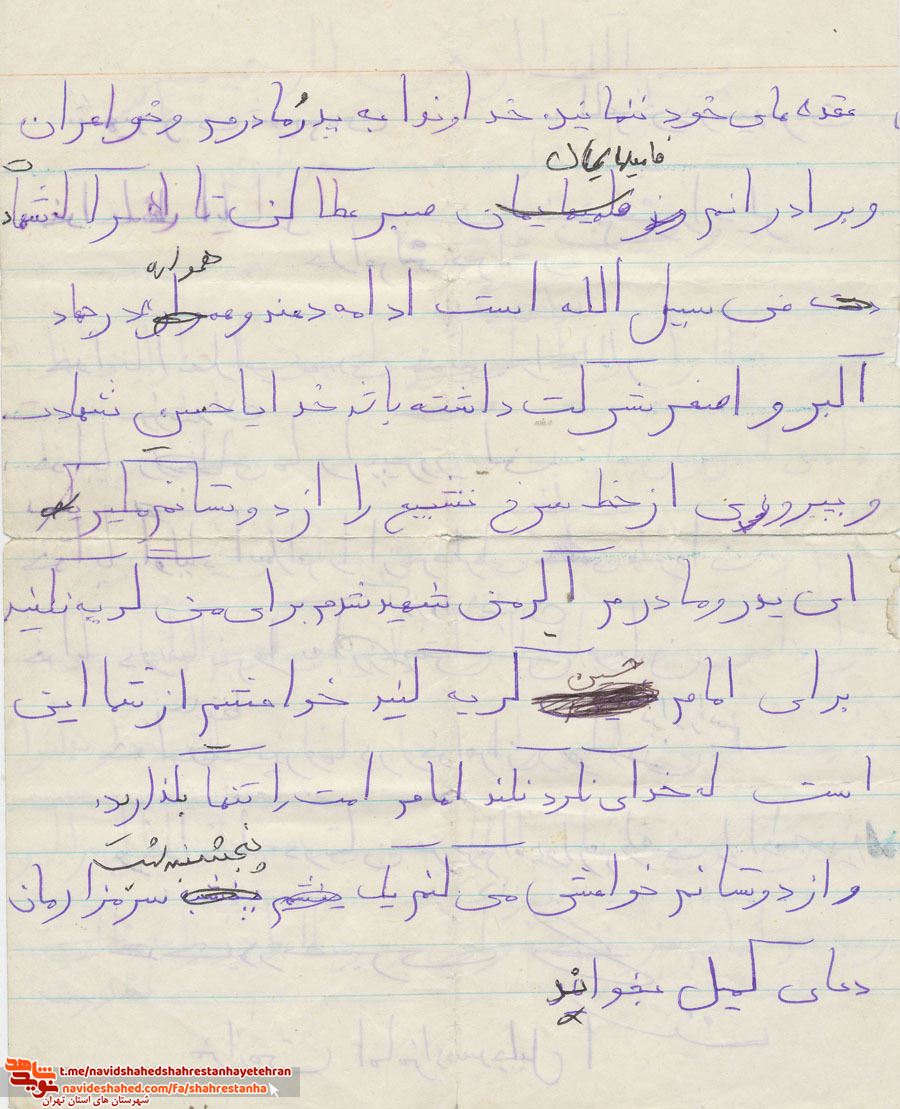 عقده های خود ننمائید. خداوندا به پدر و مادرم و خواهران
فامیلهایمان
و برادرانم و صبر عطا کن تا راهم را که شهادت
همواره
فی سبیل الله است ادامه دهند و در جهاد
اکبر و اصغر شرکت داشته باشد خدایا حسین شهادت
و پیروزی از خط سرخ تشییع را از دوستانم مگیر
ای پدر و مادرم اگر من شهید شدم برای من گریه نکنید
حسین
برای امام گریه کنید خواهشم از شما این
است که خدای نکرد نکند امام امت را تنها بگذارید.
پنجشنبه شب
و از دوستانم خواهش می کنم یک سرمزارمان
دعای کمیل بخوانند
شاهد
نوید
t.me/navidshahedshahrestanhayetehran
navideshahed.com/fa/shahrestanha
شهرستان های استان تهران